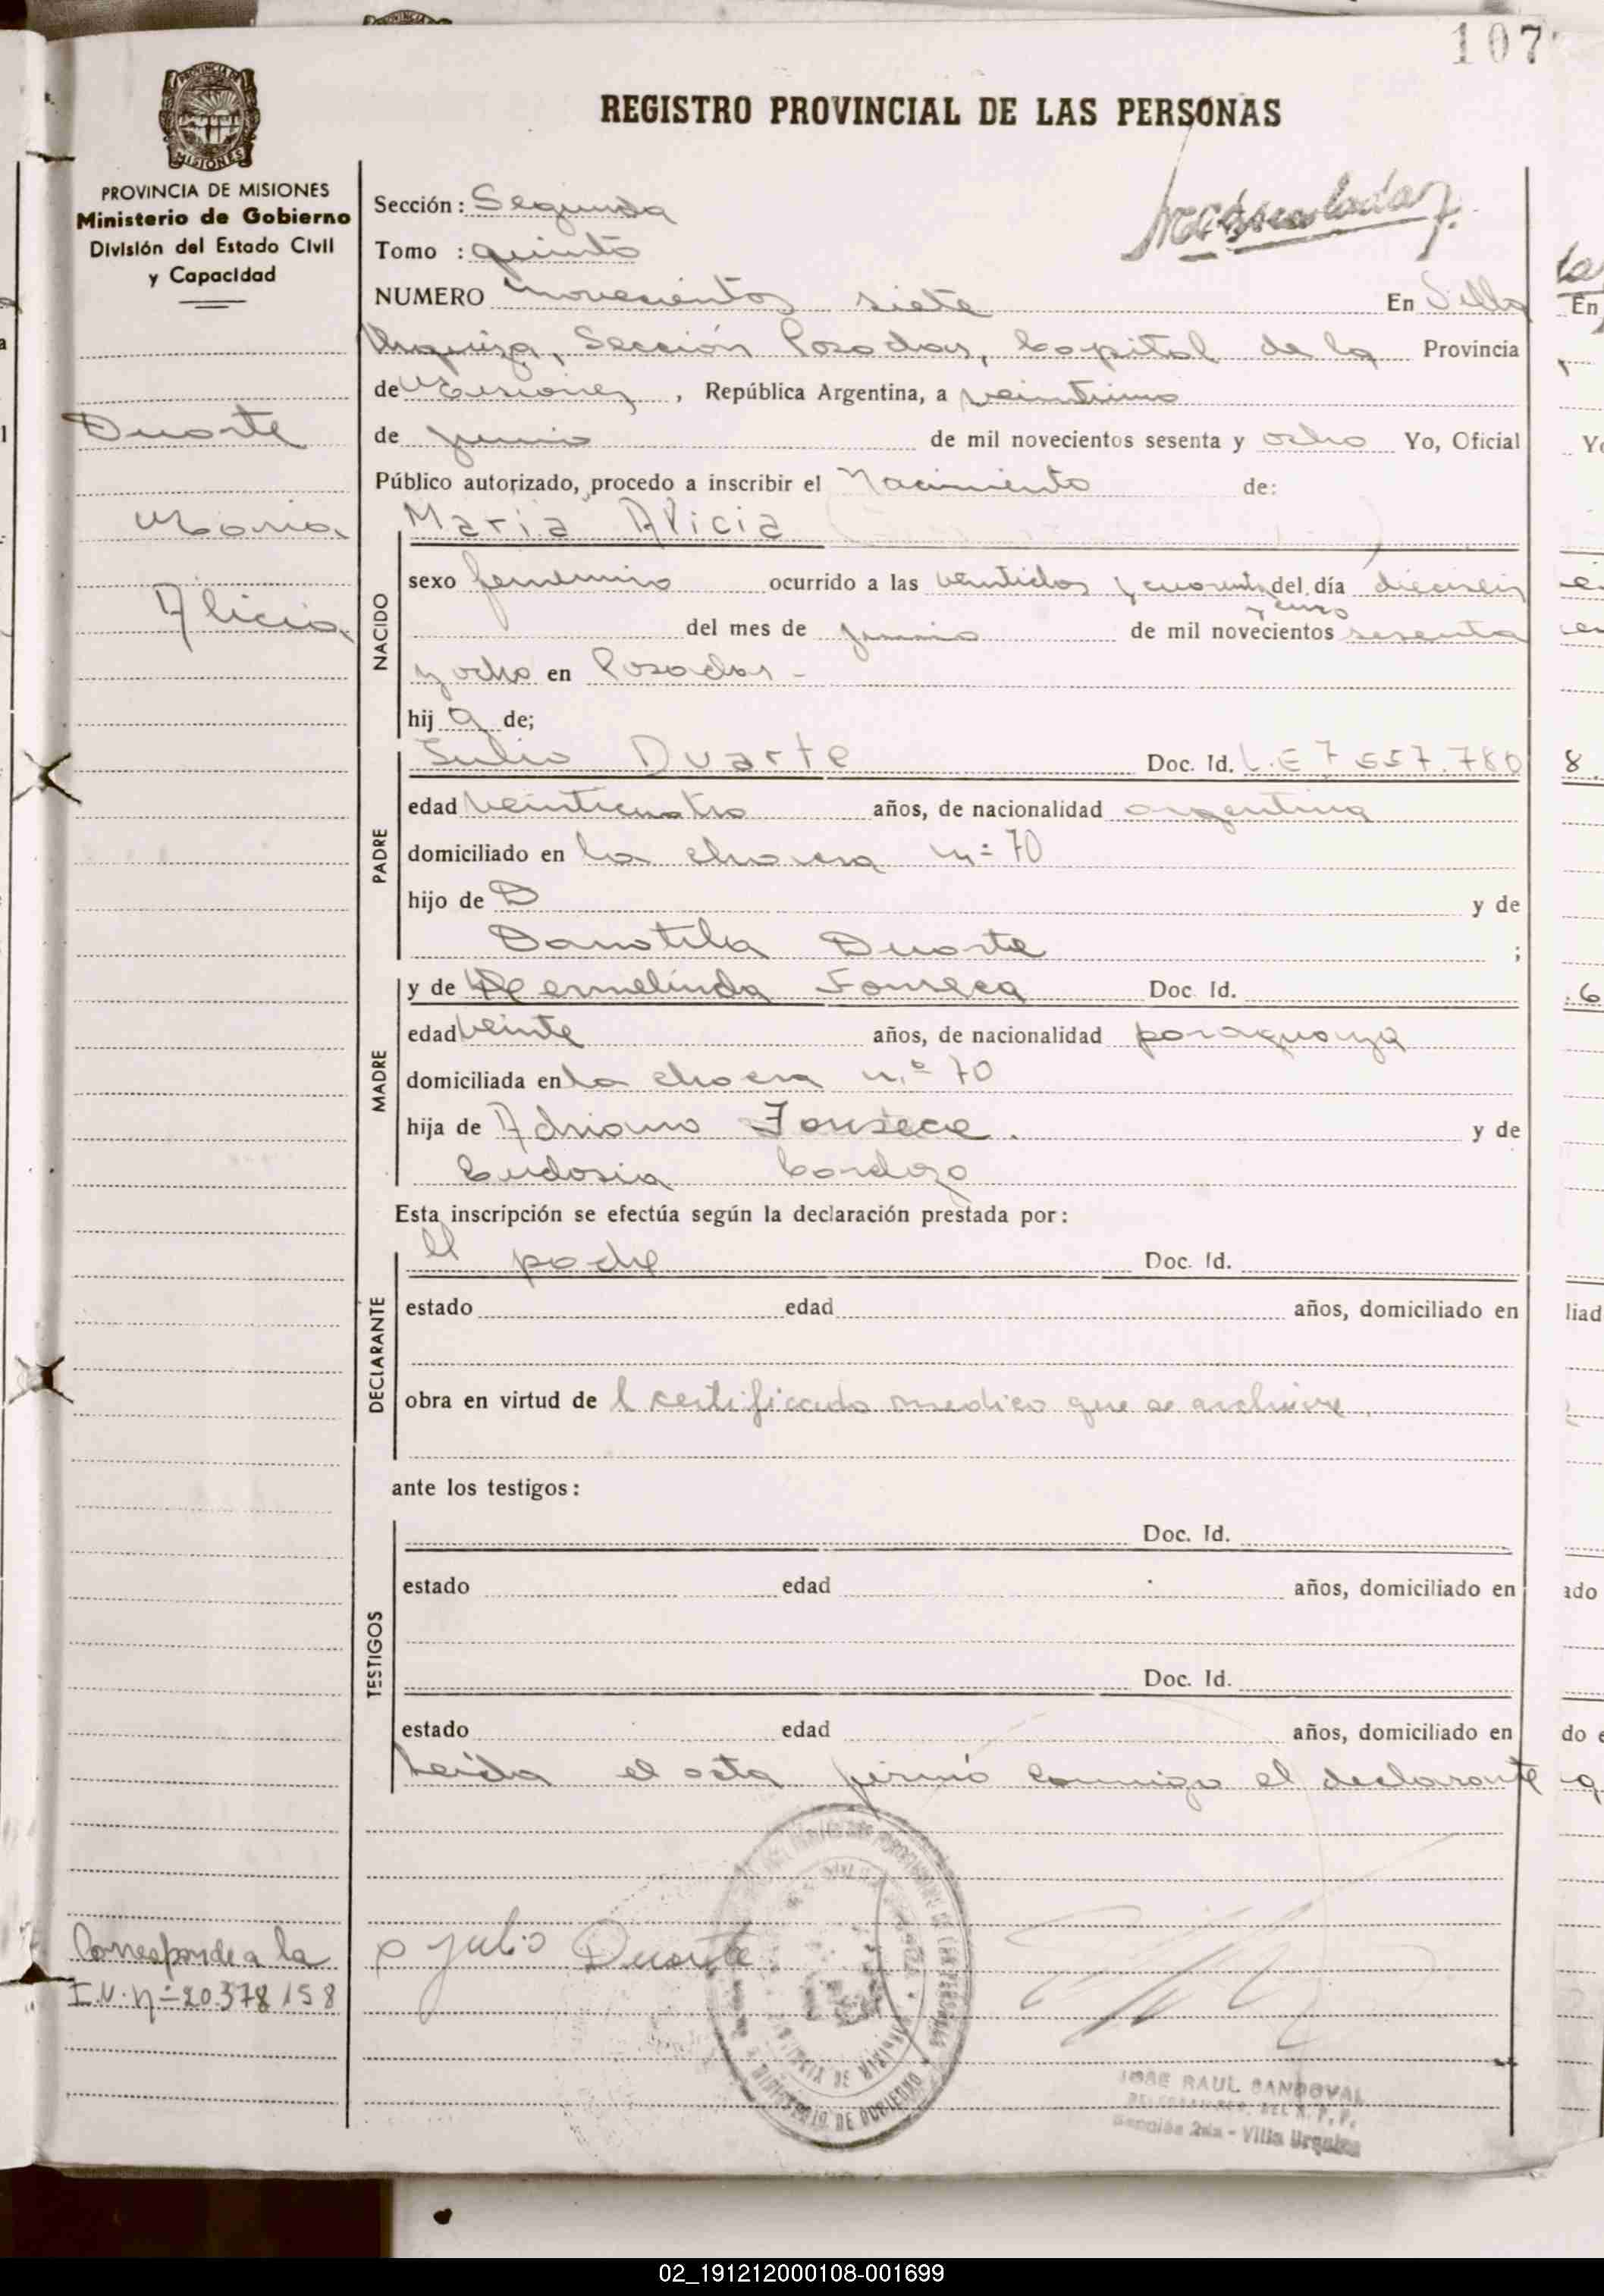 107
REGISTRO PROVINCIAL DE LAS PERSONAS
PROVINCIA DE
MISIONES
PROVINCIA DE MISIONES
Ministerio de Gobierno
División del Estado Civil
y Capacidad
Duarte
Maria
Alicia
Corresponde a la
I.N. nº 20378/58
Sección: Segunda
Tomo : quinto
NUMERO novecientos siete En Villa
Urquiza, Sección Posadas, Capital de la Provincia
de Misiones, República Argentina, a veintiuno
de junio de mil novecientos sesenta y ocho Yo, Oficial
Público autorizado, procedo a inscribir el Nacimiento de:
Maria Alicia
NACIDO
sexo femenino ocurrido a las veintidos y cuarenta del día dieciseis
y cinco
del mes de junio de mil novecientos sesenta
y ocho en Posadas -
hij a de;
PADRE
Julio Duarte Doc. Id. L.E 7.557.780
edad veinticuatro años, de nacionalidad argentina
domiciliado en la chacra nº 70
hijo de D y de
Danotila Duarte ;
MADRE
y de Hermelinda Fonseca Doc. Id.
edad veinte años, de nacionalidad paraguaya
domiciliada en la chacra n.º 70
hija de Adriano Fonseca. y de
Eudosia Cardozo
Esta inscripción se efectúa según la declaración prestada por:
DECLARANTE
El padre Doc. Id.
estado edad años, domiciliado en
obra en virtud de l certificado medico que se archiva.
ante los testigos:
TESTIGOS
Doc. Id.
estado edad años, domiciliado en
Doc. Id.
estado edad años, domiciliado en
Leida el acta firmó conmigo el declarante
Julio Duarte
MINISTERIO DE GOBIERNO
JOSE RAUL SANDOVAL
Sección 2da - Villa Urquiza
02_191212000108-001699